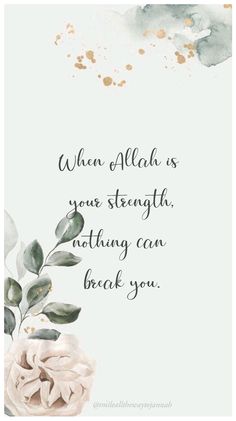 When Allah is
your strength,
nothing can
break you.
@smileallthewaytojannah